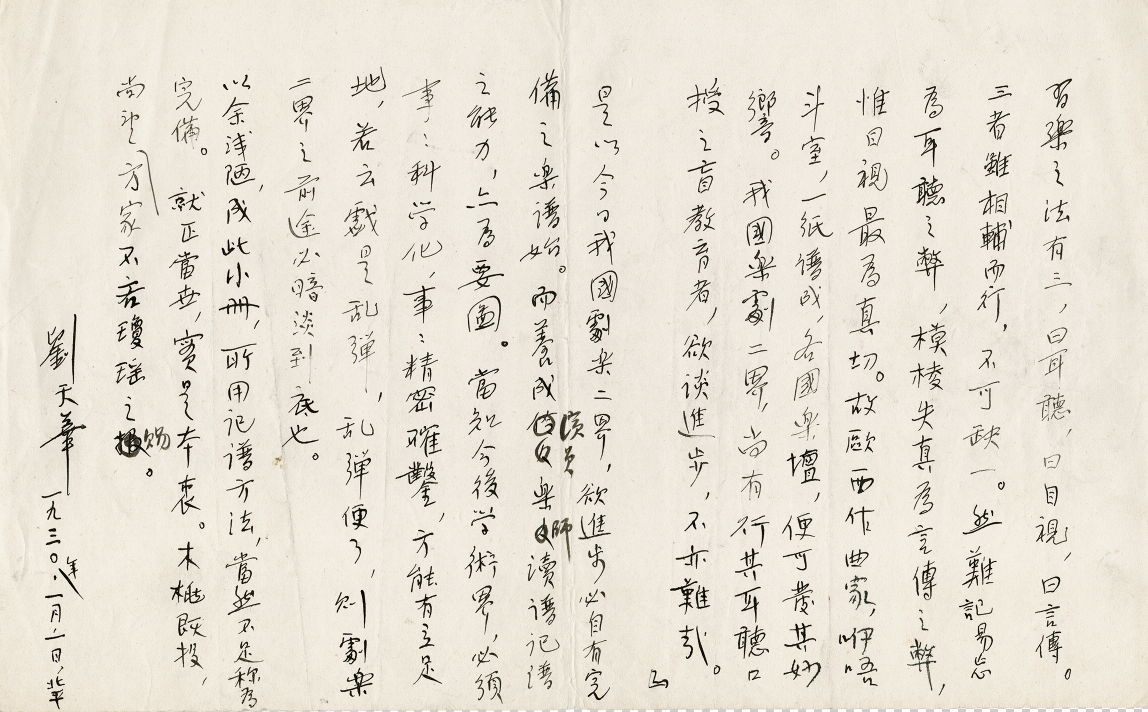 習樂之法有三，曰耳聽，曰目視，曰言傳。
三者雖相輔而行，不可缺一。然難記易忘
為耳聽之弊，模棱失真為言傳之弊，
惟目視最為真切。故歐西作曲家，咿唔
斗室，一紙譜成，各國樂壇，便可發其妙
響。我國樂劇二界，尚有行其耳聽口
授之盲教育者，欲談進步，不亦難哉。
是以今日我國劇樂二界，欲進步必自有完
備之樂譜始。而養成演員樂師讀譜記譜
之能力，亦為要圖。當知今後学術界，必須
事：科学化，事：精密確鑿，方能有立足
地，若云戲是乱彈，乱彈便了，則劇樂
二界之前途必暗淡到底也。
以余淺陋，成此小冊，所用记谱方法，當然不足称為
完備。就正當世，實是本衷。木桃既投，
尚望方家不吝瓊瑶之賜。
劉天華 一九三〇年，一月一日，北平